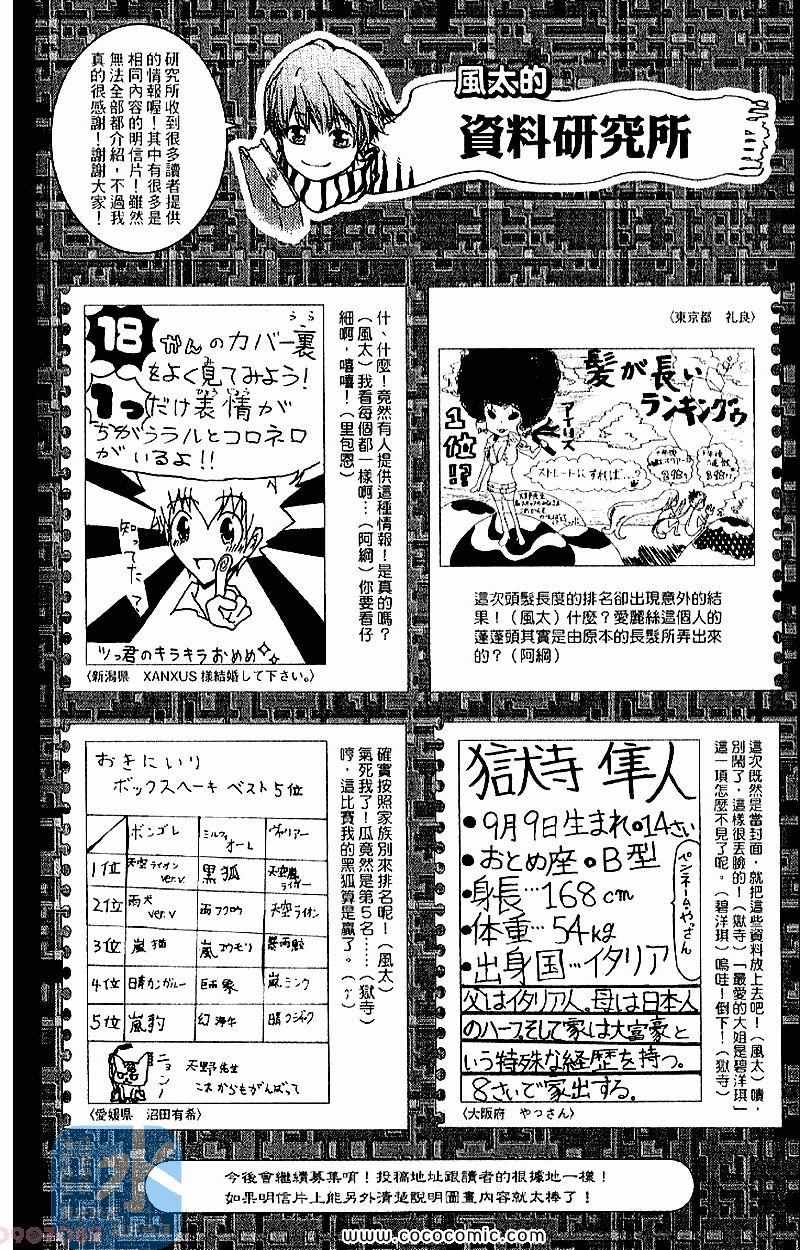 風太的
資料研究所
研究所收到很多讀者提供
的情報喔!其中有很多是
相同內容的明信片!雖然
無法全部都介紹,不過我
真的很感謝!謝謝大家!
〈東京都 礼良〉
髪が長い
ランキングゥ
1位!?
アイリス
ストレートにすれば…?
這次頭髮長度的排名卻出現意外的結
果!(風太)什麼?愛麗絲這個人的
蓬蓬頭其實是由原本的長髮所弄出來
的?(阿綱)
什、什麼!竟然有人提供這種情報!是真的嗎?
(風太)我看每個都一樣啊…(阿綱)你要看仔
細啊,嘻嘻!(里包恩)
うら
18かんのカバー裏
をよく見てみよう!
1つだけ表情が
ちがうラルとコロネロ
がいるよ!!
知ってた?
ツっ君のキラキラおめめ
〈新潟県 XANXUS様結婚して下さい。〉
這次既然是當封面,就把這些資料放上去吧!(風太)嘖,
別鬧了,這樣很丟臉的!(獄寺)「最愛的大姐是碧洋琪」
這一項怎麼不見了呢。(碧洋琪)嗚哇!倒下!(獄寺)
獄寺 隼人
●9月9日生まれ●14さい
●おとめ座●B型
●身長…168cm
●体重…54kg
●出身国…イタリア
ペンネーム・やっさん
父はイタリア人。母は日本人
のハーフ。そして家は大富豪と
いう特殊な経歴を持つ。
8さいで家出する。
〈大阪府 やっさん〉
確實按照家族別來排名呢!(風太)
氣死我了!瓜竟然是第5名……(獄寺)
哼,這比賽我的黑狐算是贏了。(γ)
おきにいり
ボックスヘーキ ベスト5位
ボンゴレ ミルフィオーレ ヴァリアー
1位 天空ライオンver.V 黒狐 天空嵐ライガー
2位 雨犬ver.V 雨フクロウ 天空ライオン
3位 嵐猫 嵐コウモリ 暴雨鮫
4位 晴カンガルー 巨象 嵐ミンク
5位 嵐豹 幻海牛 晴クジャク
ニョン!
天野先生
これからもがんばって
〈愛媛県 沼田有希〉
今後會繼續募集唷!投稿地址跟讀者的根據地一樣!
如果明信片上能另外清楚說明圖畫內容就太棒了!
WWW.COCOCOMIC.COM